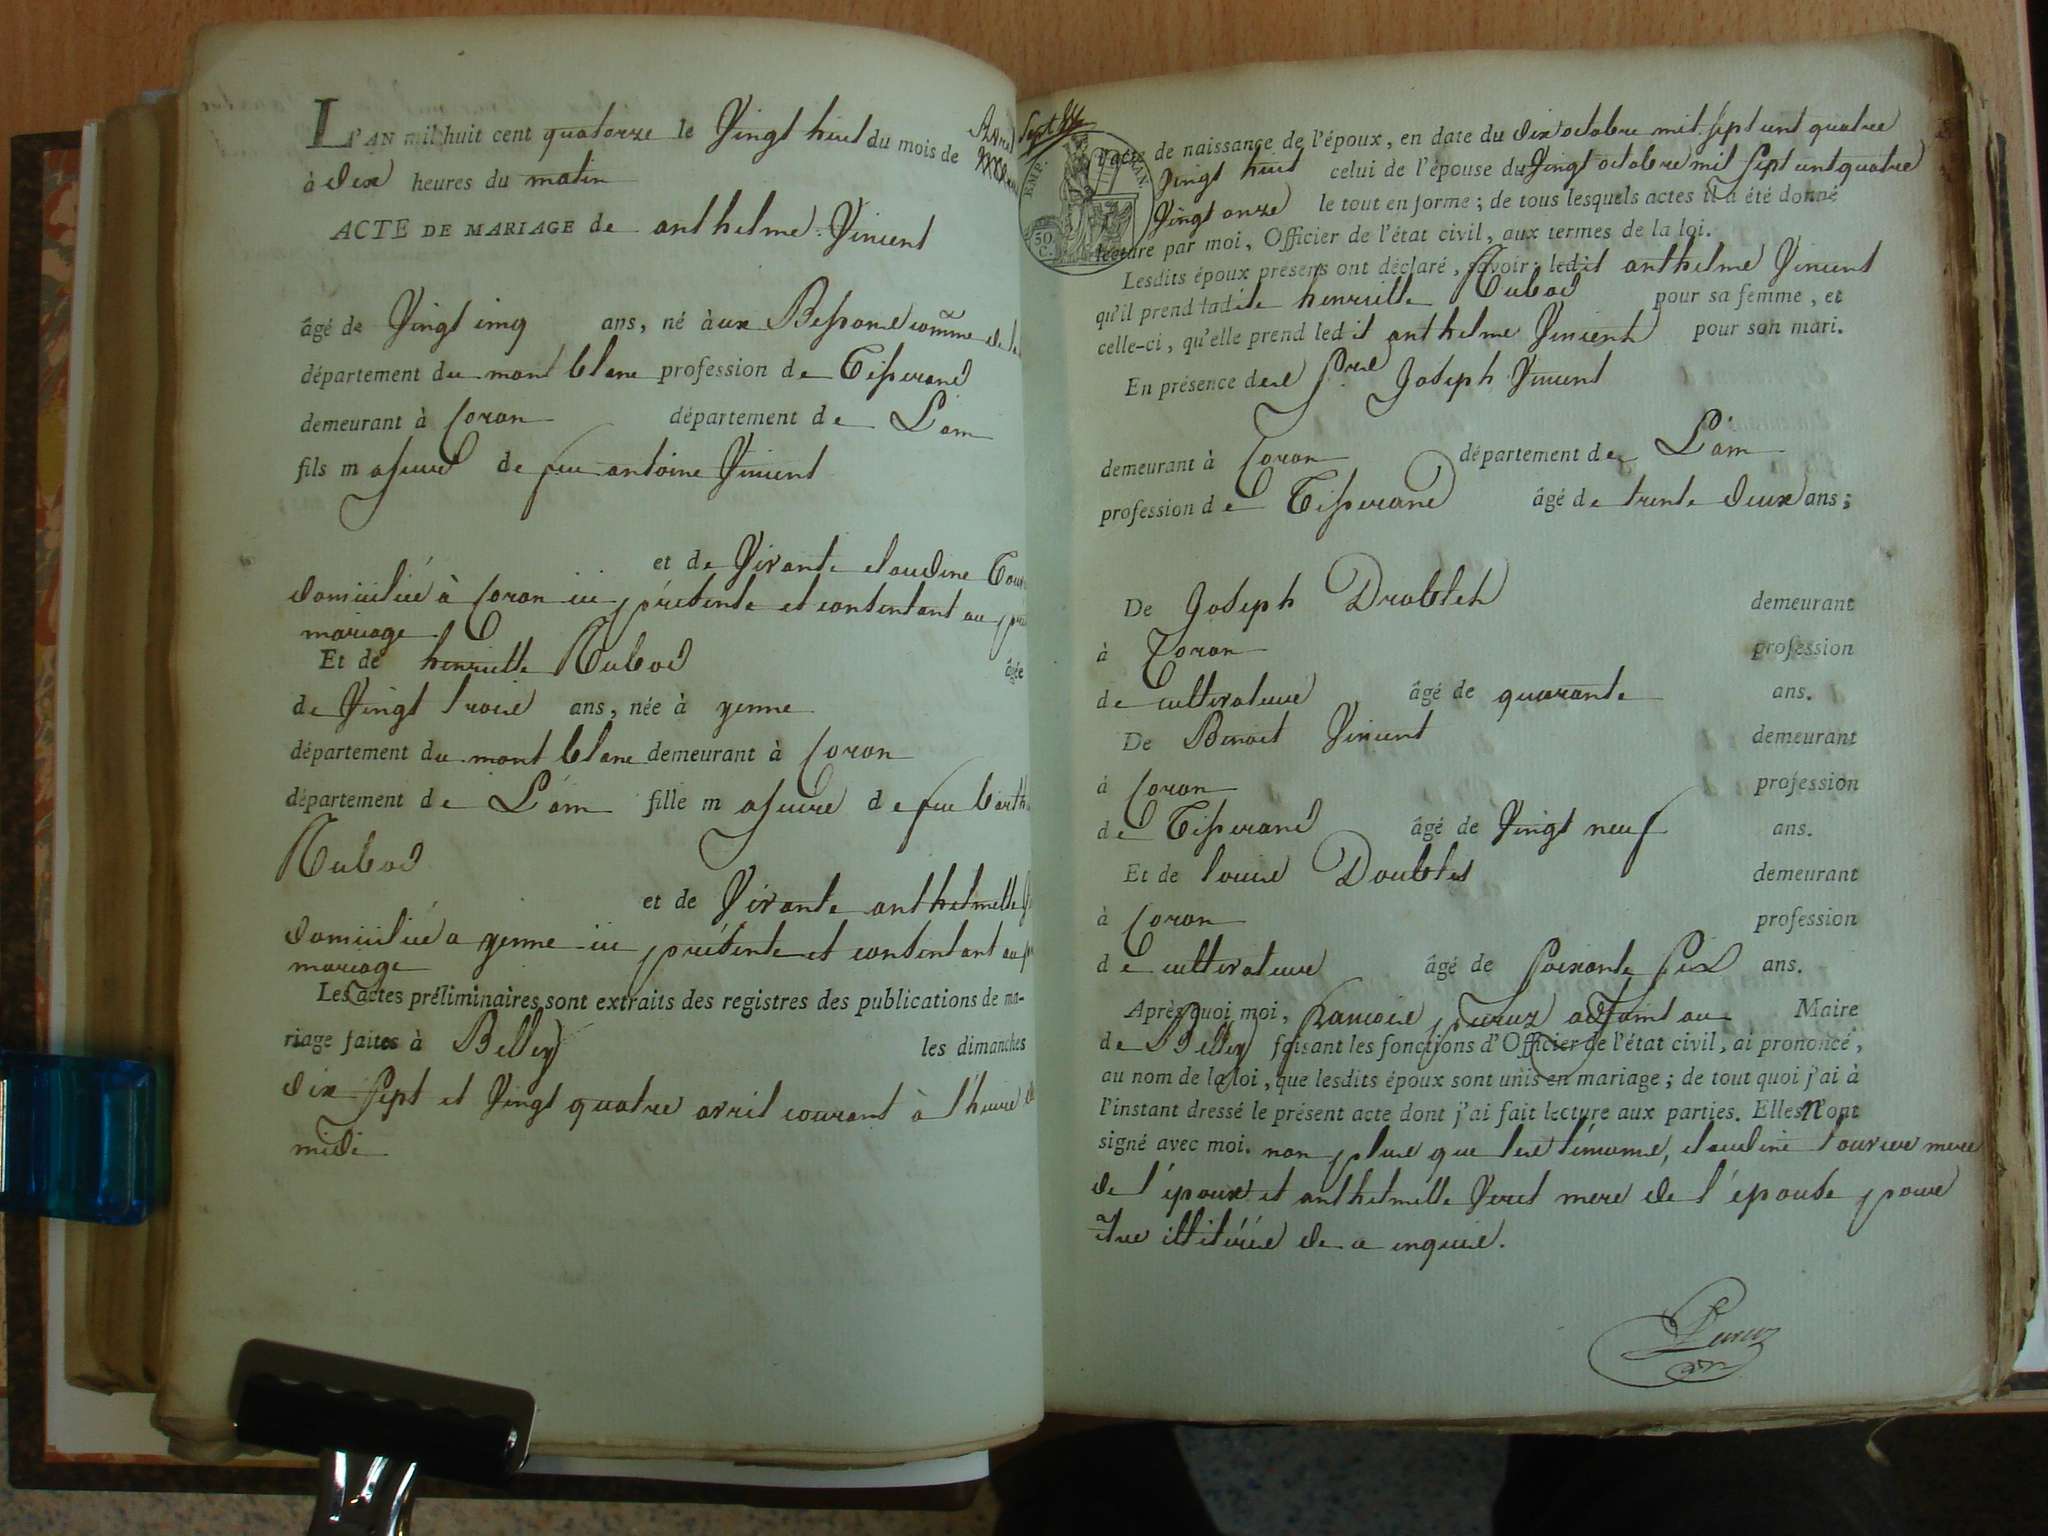 L'AN mil huit cent quatorze le Vingt huit du mois de Avril
à dix heures du matin
ACTE DE MARIAGE de anthelme Vincent
âgé de Vingt cinq ans, né à aux Bessons com̃ne de
département du mont blanc profession de Tisserand
demeurant à Coron département de L'ain
fils majeur de feu antoine Vincent
et de Vivante claudine
domiciliée à Coron ici présente et consentant au
mariage
Et de henriette Rubod âgée
de Vingt trois ans, née à yenne
département du mont blanc demeurant à Coron
département de L'ain fille majeure de feu
Rubod
et de Vivante anthelmette
domiciliée a yenne ici présente et consentant au
mariage
Les actes préliminaires sont extraits des registres des publications de ma-
riage faites à Belley les dimanches
dix sept et Vingt quatre avril courant à l'heure de
midi
EMP. FRAN.
50 C.
l'acte de naissance de l'époux, en date du dix octobre mil sept cent quatre
Vingt huit celui de l'épouse du Vingt octobre mil sept cent quatre
Vingt onze le tout en forme ; de tous lesquels actes il a été donné
lecture par moi, Officier de l'état civil, aux termes de la loi.
Lesdits époux présens ont déclaré, savoir : ledit anthelme Vincent
qu'il prend ladite henriette Rubod pour sa femme, et
celle-ci, qu'elle prend ledit anthelme Vincent pour son mari.
En présence de Joseph Vincent
demeurant à Coron département de L'ain
profession de Tisserand âgé de trente deux ans ;
De Joseph Drablet demeurant
à Coron profession
de cultivateur âgé de quarante ans.
De Benoit Vincent demeurant
à Coron profession
de Tisserand âgé de Vingt neuf ans.
Et de louis Doublet demeurant
à Coron profession
de cultivateur âgé de soixante six ans.
Après quoi moi, francois peruz adjoint au Maire
de Belley faisant les fonctions d'Officier de l'état civil, ai prononcé,
au nom de la loi, que lesdits époux sont unis en mariage ; de tout quoi j'ai à
l'instant dressé le présent acte dont j'ai fait lecture aux parties. Elles n'ont
signé avec moi. non plus que les témoins, claudine mere
de l'époux et anthelmette Veret mere de l'épouse pour
être illitérés de ce enquis.
Peruz